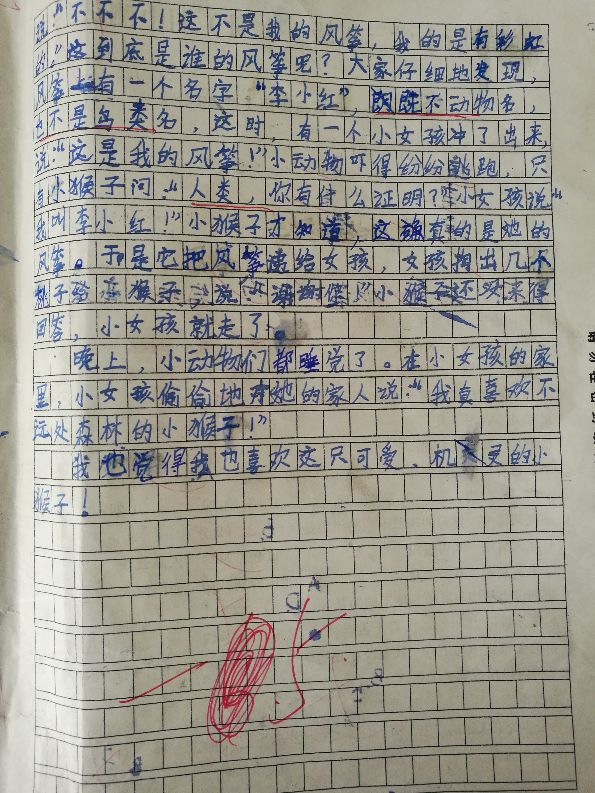 说:“不不不!这不是我的风筝,我的是有彩虹
的。”这到底是谁的风筝呢?大家仔细地发现,
风筝上有一个名字“李小红”,既不动物名,
也不是鸟类名,这时,有一个小女孩冲了出来,
说:“这是我的风筝!”小动物吓得纷纷跳跑,只
有小猴子问:“人类,你有什么证明?”小女孩说:“
我叫李小红!”小猴子才知道,这确真的是她的
风筝。于是它把风筝递给女孩,女孩掏出几个
桃子给小猴子,说:“谢谢您!”小猴子还没来得
回答,小女孩就走了。
晚上,小动物们都睡觉了。在小女孩的家
里,小女孩偷偷地对她的家人说:“我真喜欢不
远处森林的小猴子!”
我也觉得我也喜欢这只可爱、机灵的小
猴子!